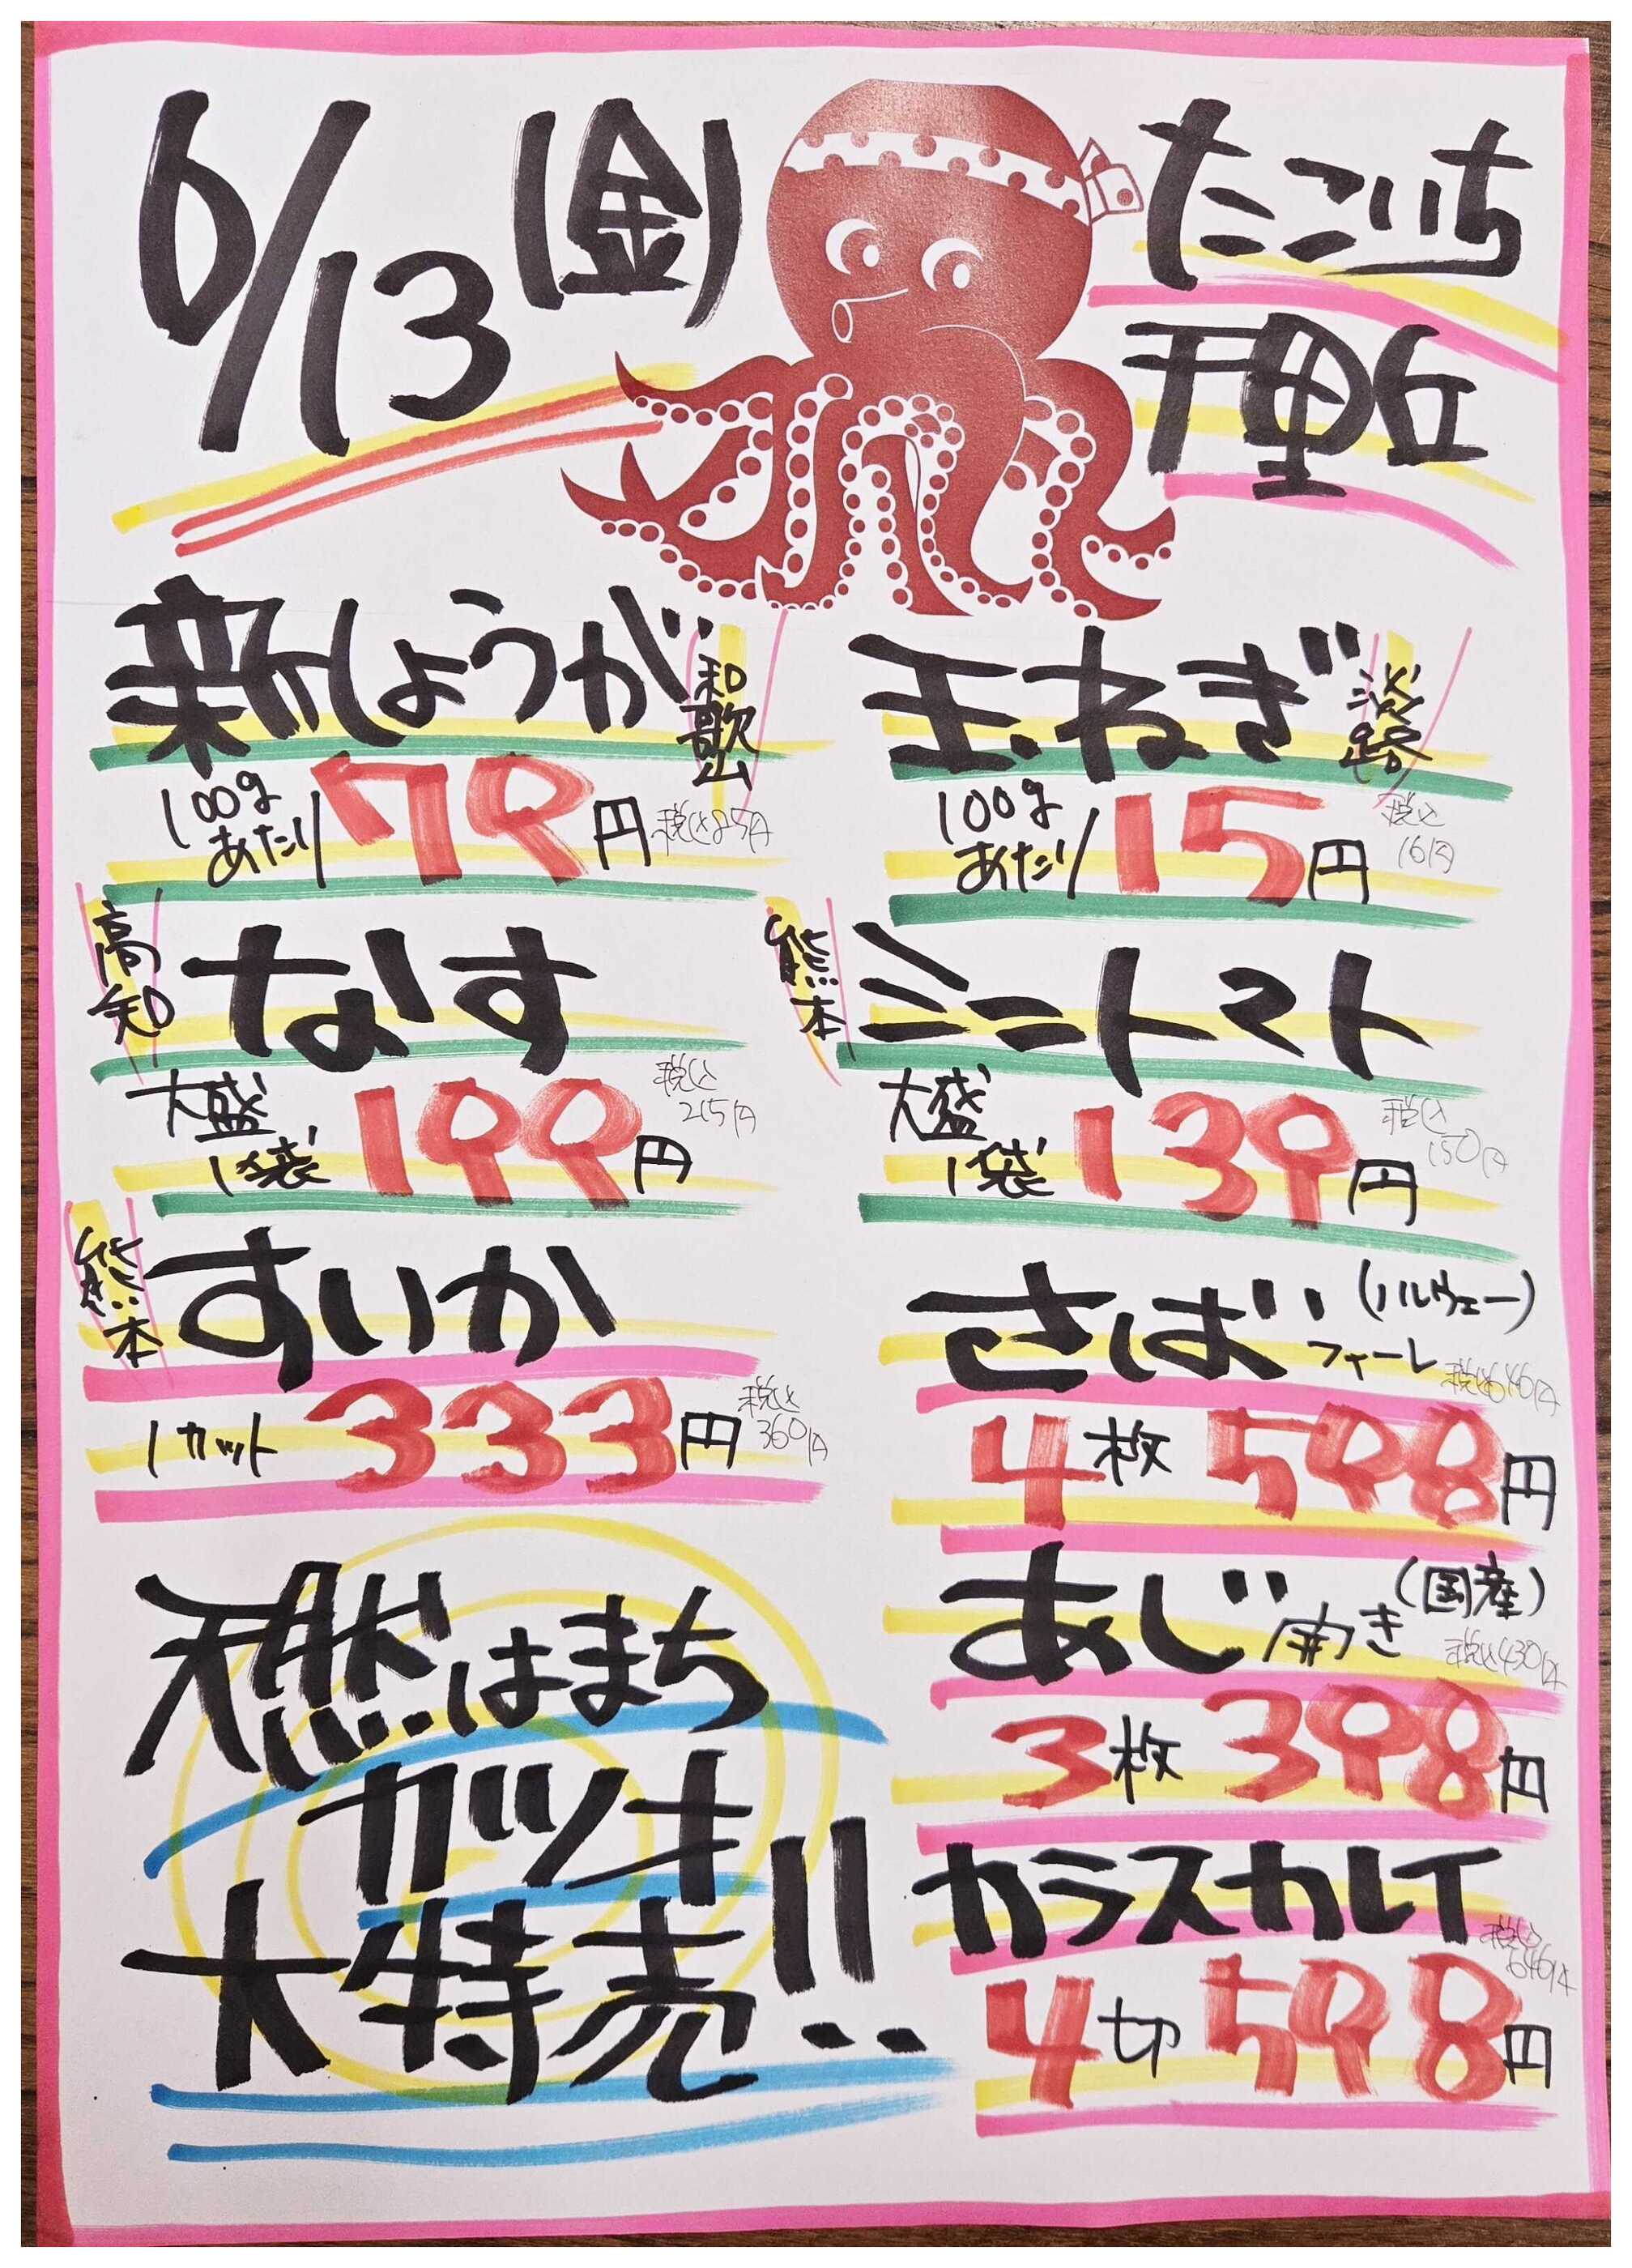 6/13(金)
たこいち
千里丘
新しょうが
和歌山
100g
あたり
79円
税込85円
玉ねぎ
淡路
100g
あたり
15円
税込
16円
高知
なす
大盛
1袋
199円
税込
215円
熊本
ミニトマト
大盛
1袋
139円
税込
150円
熊本
すいか
1カット
333円
税込
360円
さば
(ノルウェー)
フィーレ
税込646円
4枚 598円
あじ開き
(国産)
税込430円
3枚 398円
カラスカレイ
税込
646円
4切 598円
天然はまち
カツオ
大特売!!